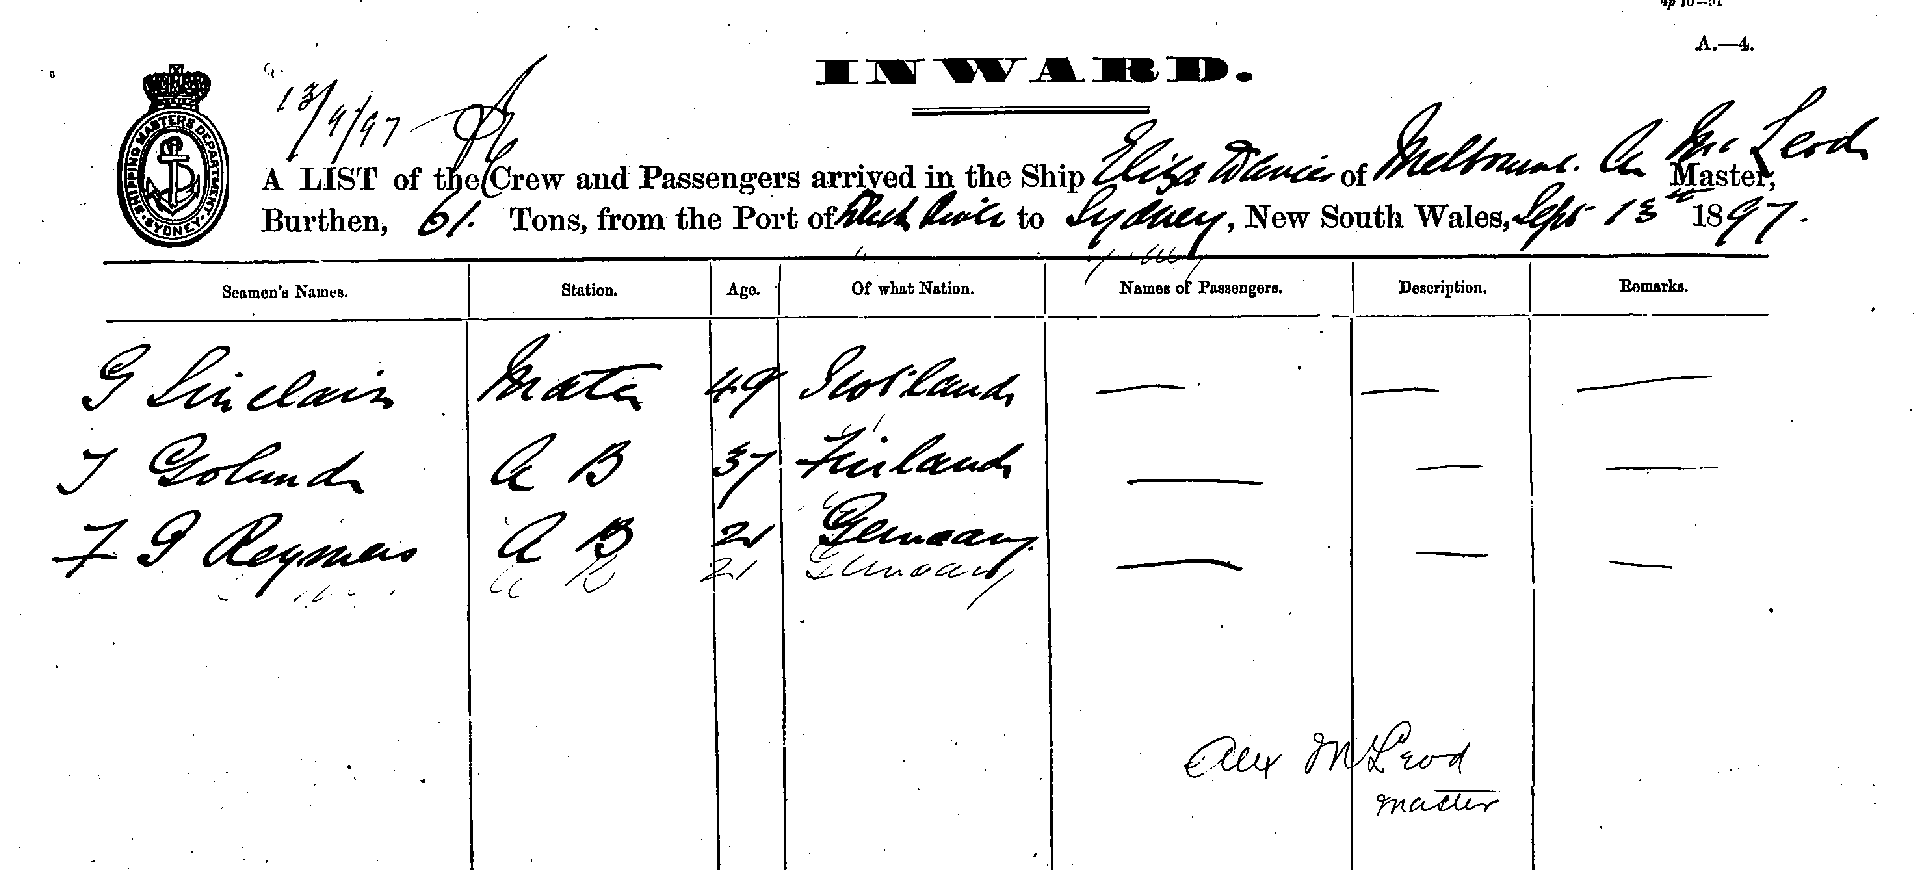 A.—4.
INWARD.
SHIPPING MASTERS DEPARTMENT SYDNEY
13/9/97
A LIST of the Crew and Passengers arrived in the Ship Eliza Davies of Melbourne. A Mc Leod Master,
Burthen, 61. Tons, from the Port of to Sydney, New South Wales, Sept 13th 1897.
Seamen's Names. Station. Age. Of what Nation. Names of Passengers. Description. Remarks.
G Sinclair Mate 49 Scotland — — —
A B 37 Finland — — —
F G Reymers A B 21 Germany — — —
A B 21 Germany
Alex McLeod
master